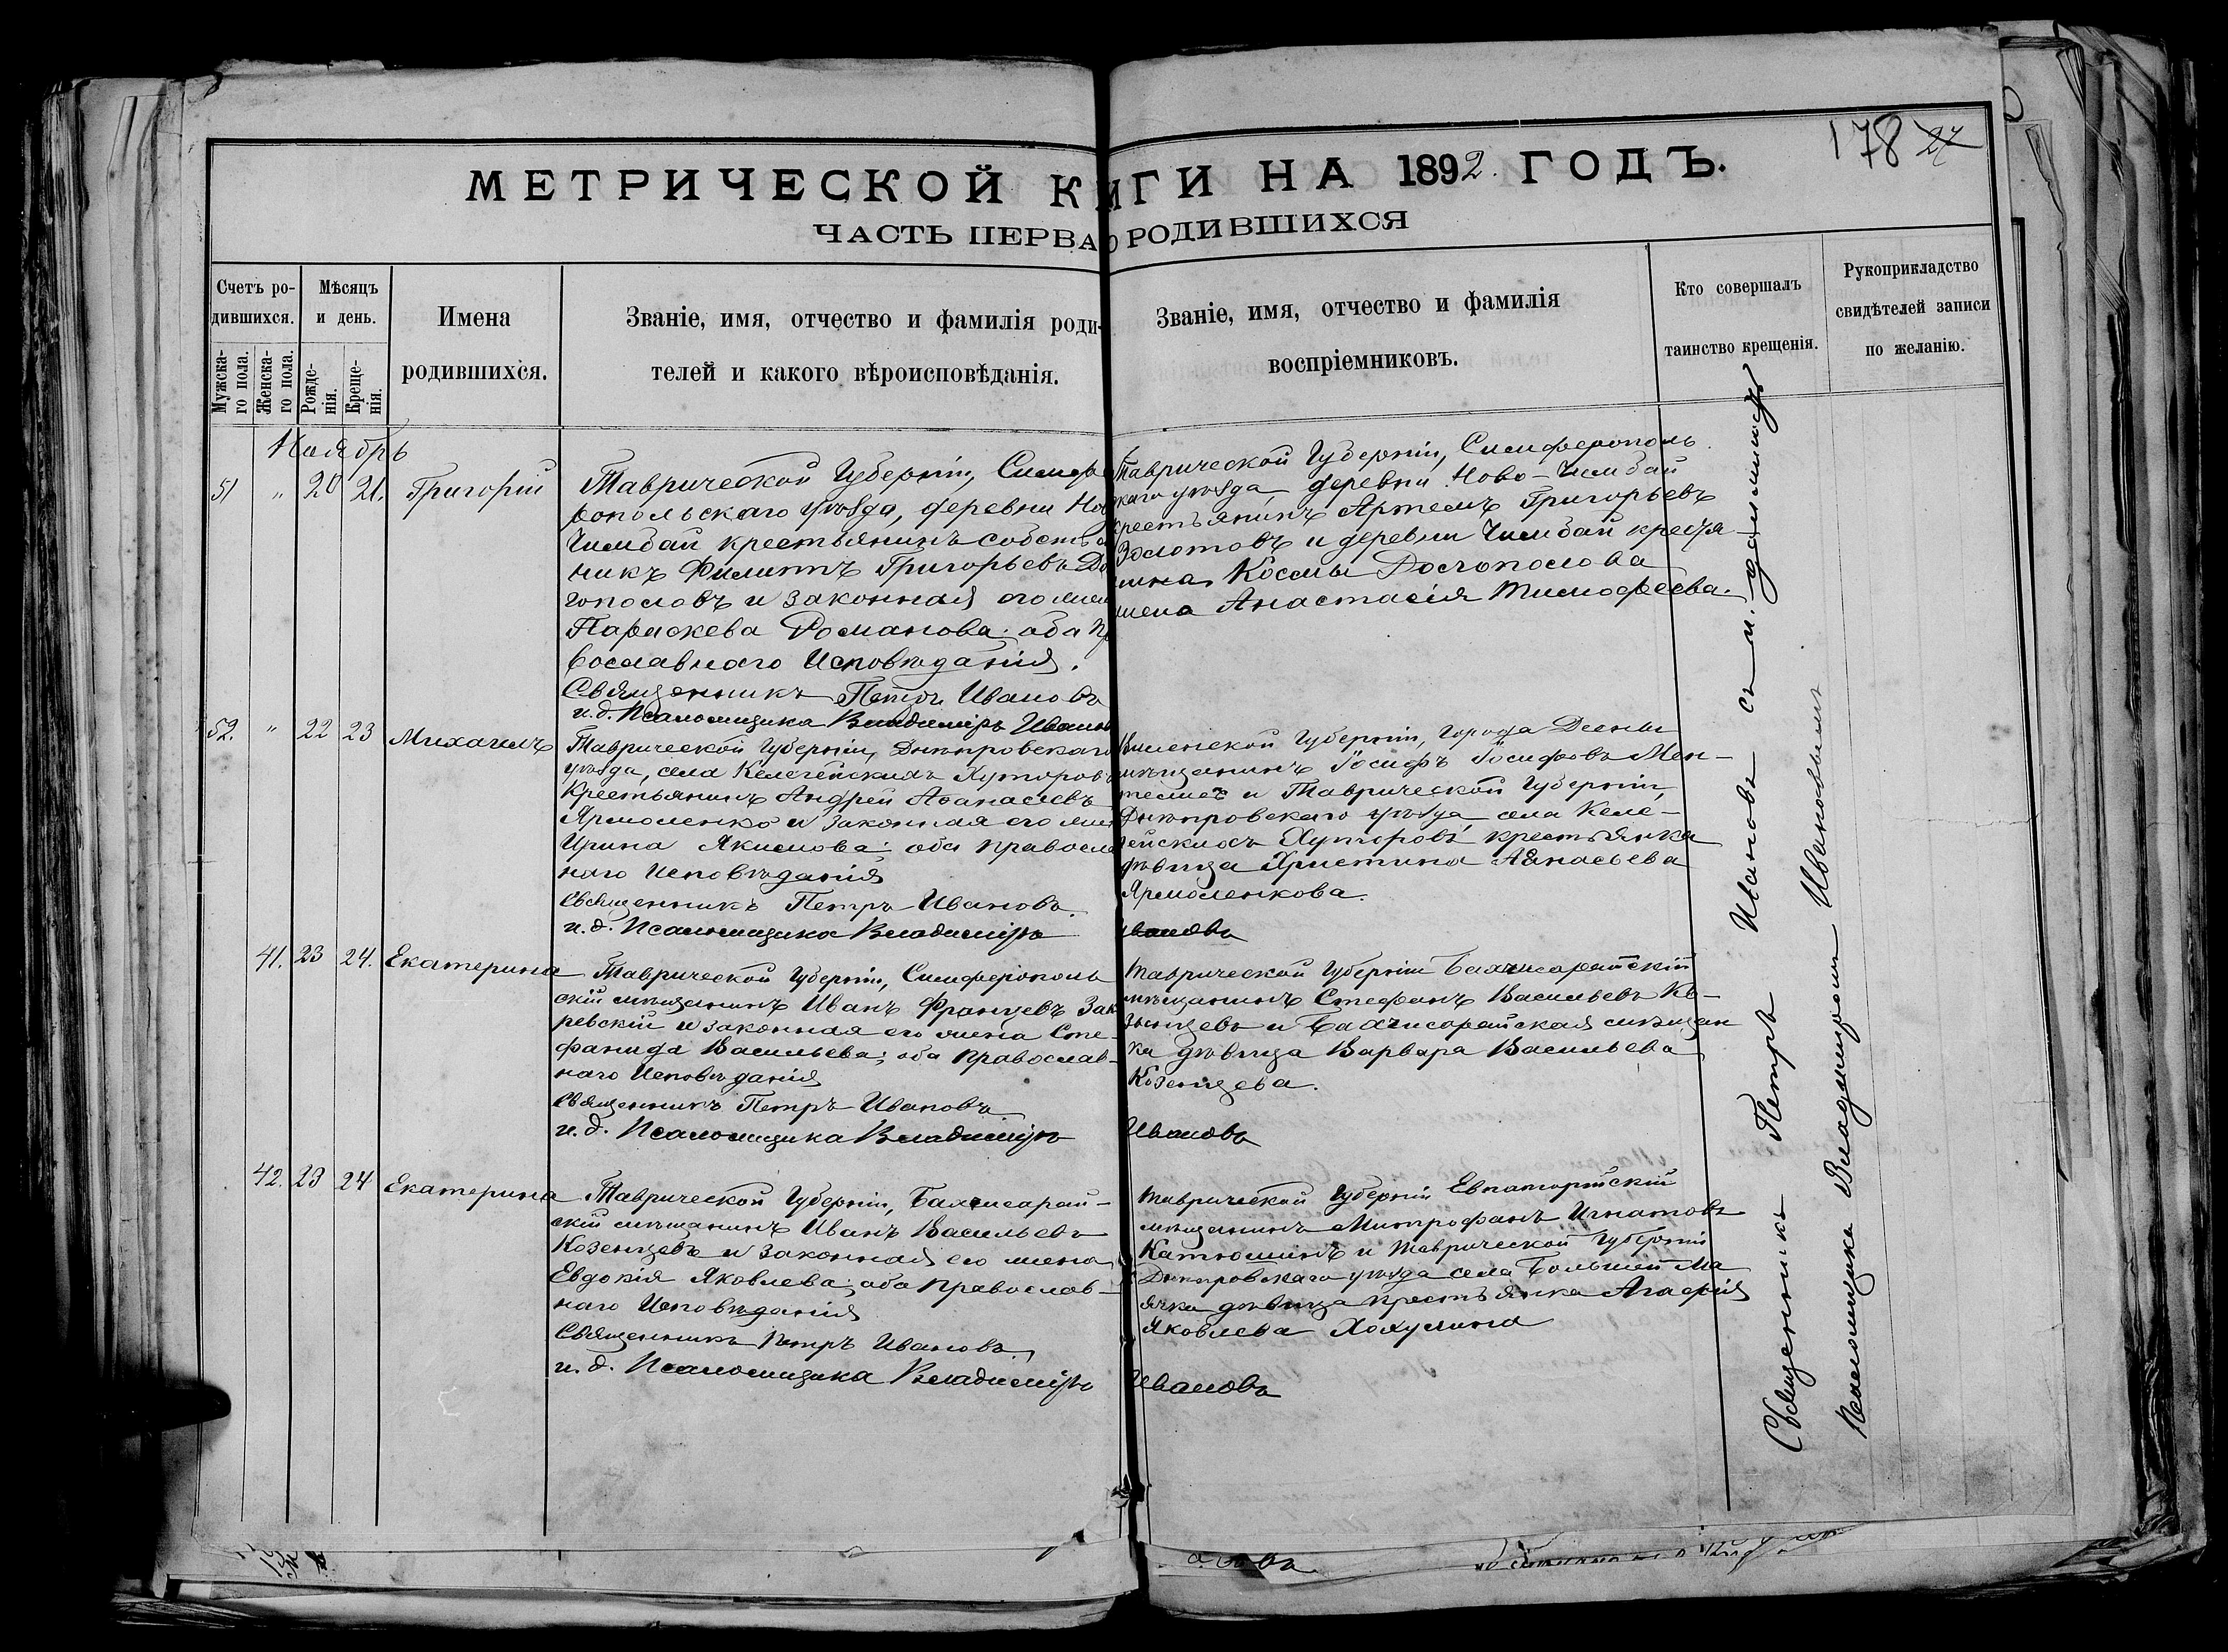 178 27
МЕТРИЧЕСКОЙ КНИГИ НА 1892. ГОДЪ.
ЧАСТЬ ПЕРВАЯ О РОДИВШИХСЯ
Счетъ ро-
дившихся.
Мужска-
го пола.
Женска-
го пола.
Мѣсяцъ
и день.
Рожде-
нія.
Креще-
нія.
Имена
родившихся.
Званіе, имя, отчество и фамилія роди-
телей и какого вѣроисповѣданія.
Званіе, имя, отчество и фамилія
воспріемниковъ.
Кто совершалъ
таинство крещенія.
Рукоприкладство
свидѣтелей записи
по желанію.
Ноябрь
51 " 20 21. Григорій
Таврической Губерніи, Симфе
ропольскаго уѣзда, деревни Но
Чимбай крестьянинъ собств
никъ Филиппъ Григорьевъ До
гополовъ и законная его жен
Параскева Романова; оба пр
вославнаго Исповѣданія.
Священникъ Петръ Ивановъ
и. д. Псаломщика Владиміръ Иванов
Таврической Губерніи, Симферополь
скаго уѣзда, деревни Ново-Чимбай
крестьянинъ Артемъ Григорьевъ
Золотовъ и деревни Чимбай крестья
нина Космы Долгополова
жена Анастасія Тимофеева.
52. " 22 23 Михаилъ
Таврической Губерніи, Днѣпровскаго
уѣзда, села Келегейскихъ Хуторовъ
Крестьянинъ Андрей Афанасіевъ
Ярмоленко и законная его жен
Ирина Якимова; оба правосла
наго Исповѣданія
Священникъ Петръ Ивановъ.
и. д. Псаломщика Владиміръ Ивановъ
Виленской Губерніи, города Десны
мѣщанинъ Іосифъ Іосифовъ Мен-
и Таврической Губерніи,
Днѣпровскаго уѣзда села Келе-
гейскихъ Хуторовъ, крестьянка
дѣвица Христина Афанасьева
Ярмоленкова.
41. 23 24. Екатерина
Таврической Губерніи, Симферополь
скій мѣщанинъ Иванъ Францевъ Зак
ревскій и законная его жена Сте-
фанида Васильева; оба православ-
наго Исповѣданія
Священникъ Петръ Ивановъ
и. д. Псаломщика Владиміръ Ивановъ
Таврической Губерніи Бахчисарайскій
мѣщанинъ Стефанъ Васильевъ Ко-
зенцевъ и Бахчисарайская мѣщан
ка дѣвица Варвара Васильева
Козенцева.
42. 23 24 Екатерина
Таврической Губерніи, Бахчисарай-
скій мѣщанинъ Иванъ Васильевъ
Козенцевъ и законная его жена
Евдокія Яковлева; оба православ-
наго Исповѣданія
Священникъ Петръ Ивановъ.
и. д. Псаломщика Владиміръ Ивановъ
Таврической Губерніи Евпаторійскій
мѣщанинъ Митрофанъ Игнатовъ
Катюшинъ и Таврической Губерніи
Днѣпровскаго уѣзда села Большой Ма
ячки дѣвица крестьянка Агафія
Яковлева
Священникъ Петръ Ивановъ съ и. должность
Псаломщика Владиміромъ Ивановымъ